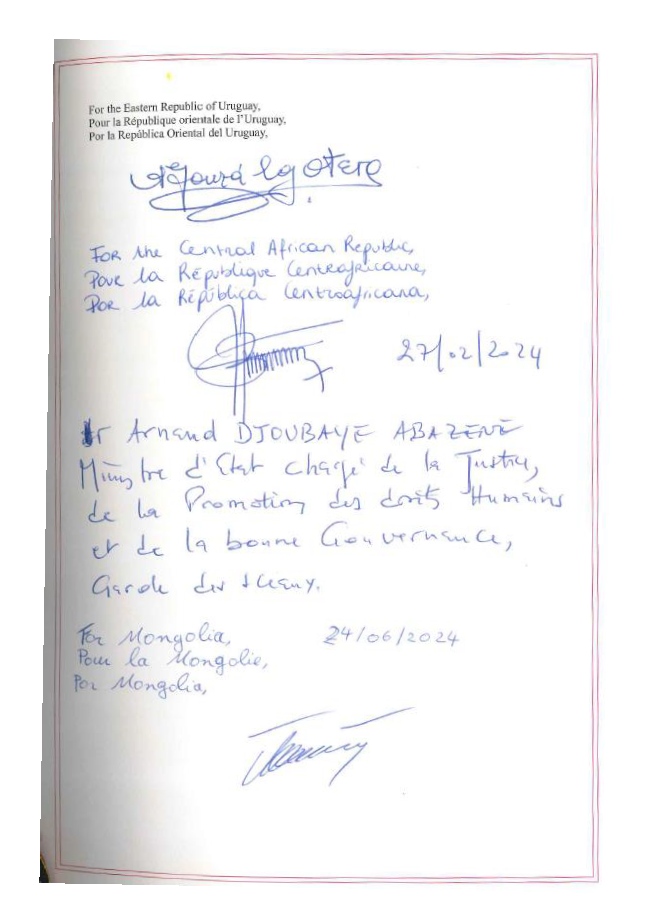 For the Eastern Republic of Uruguay,
Pour la République orientale de l'Uruguay,
Por la República Oriental del Uruguay,
Otero
For the Central African Republic,
Pour la République Centrafricaine,
Por la República Centroafricana,
27/02/2024
Arnaud DJOUBAYE ABAZENE
Ministre d'Etat chargé de la Justice,
de la Promotion des droits Humains
et de la bonne Gouvernance,
Garde des Sceaux.
For Mongolia, 24/06/2024
Pour la Mongolie,
Por Mongolia,